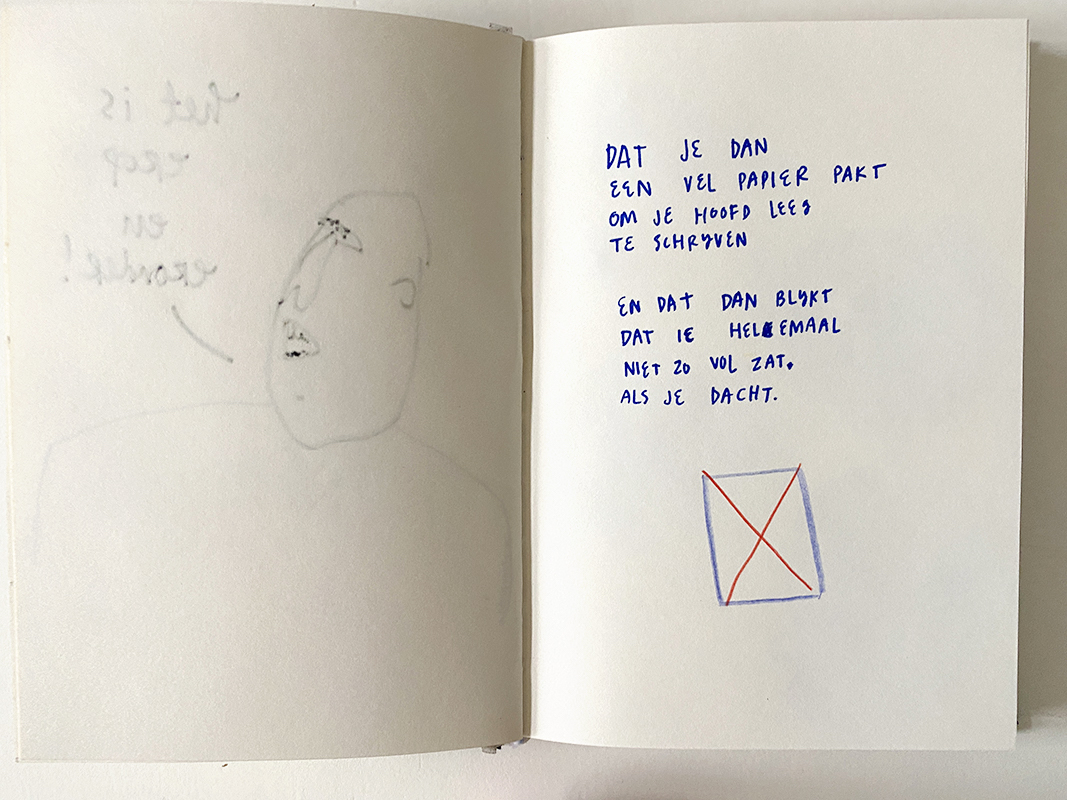 het is
erop
en
eronder!
DAT JE DAN
EEN VEL PAPIER PAKT
OM JE HOOFD LEEG
TE SCHRIJVEN
EN DAT DAN BLIJKT
DAT IE HELEMAAL
NIET ZO VOL ZAT.
ALS JE DACHT.